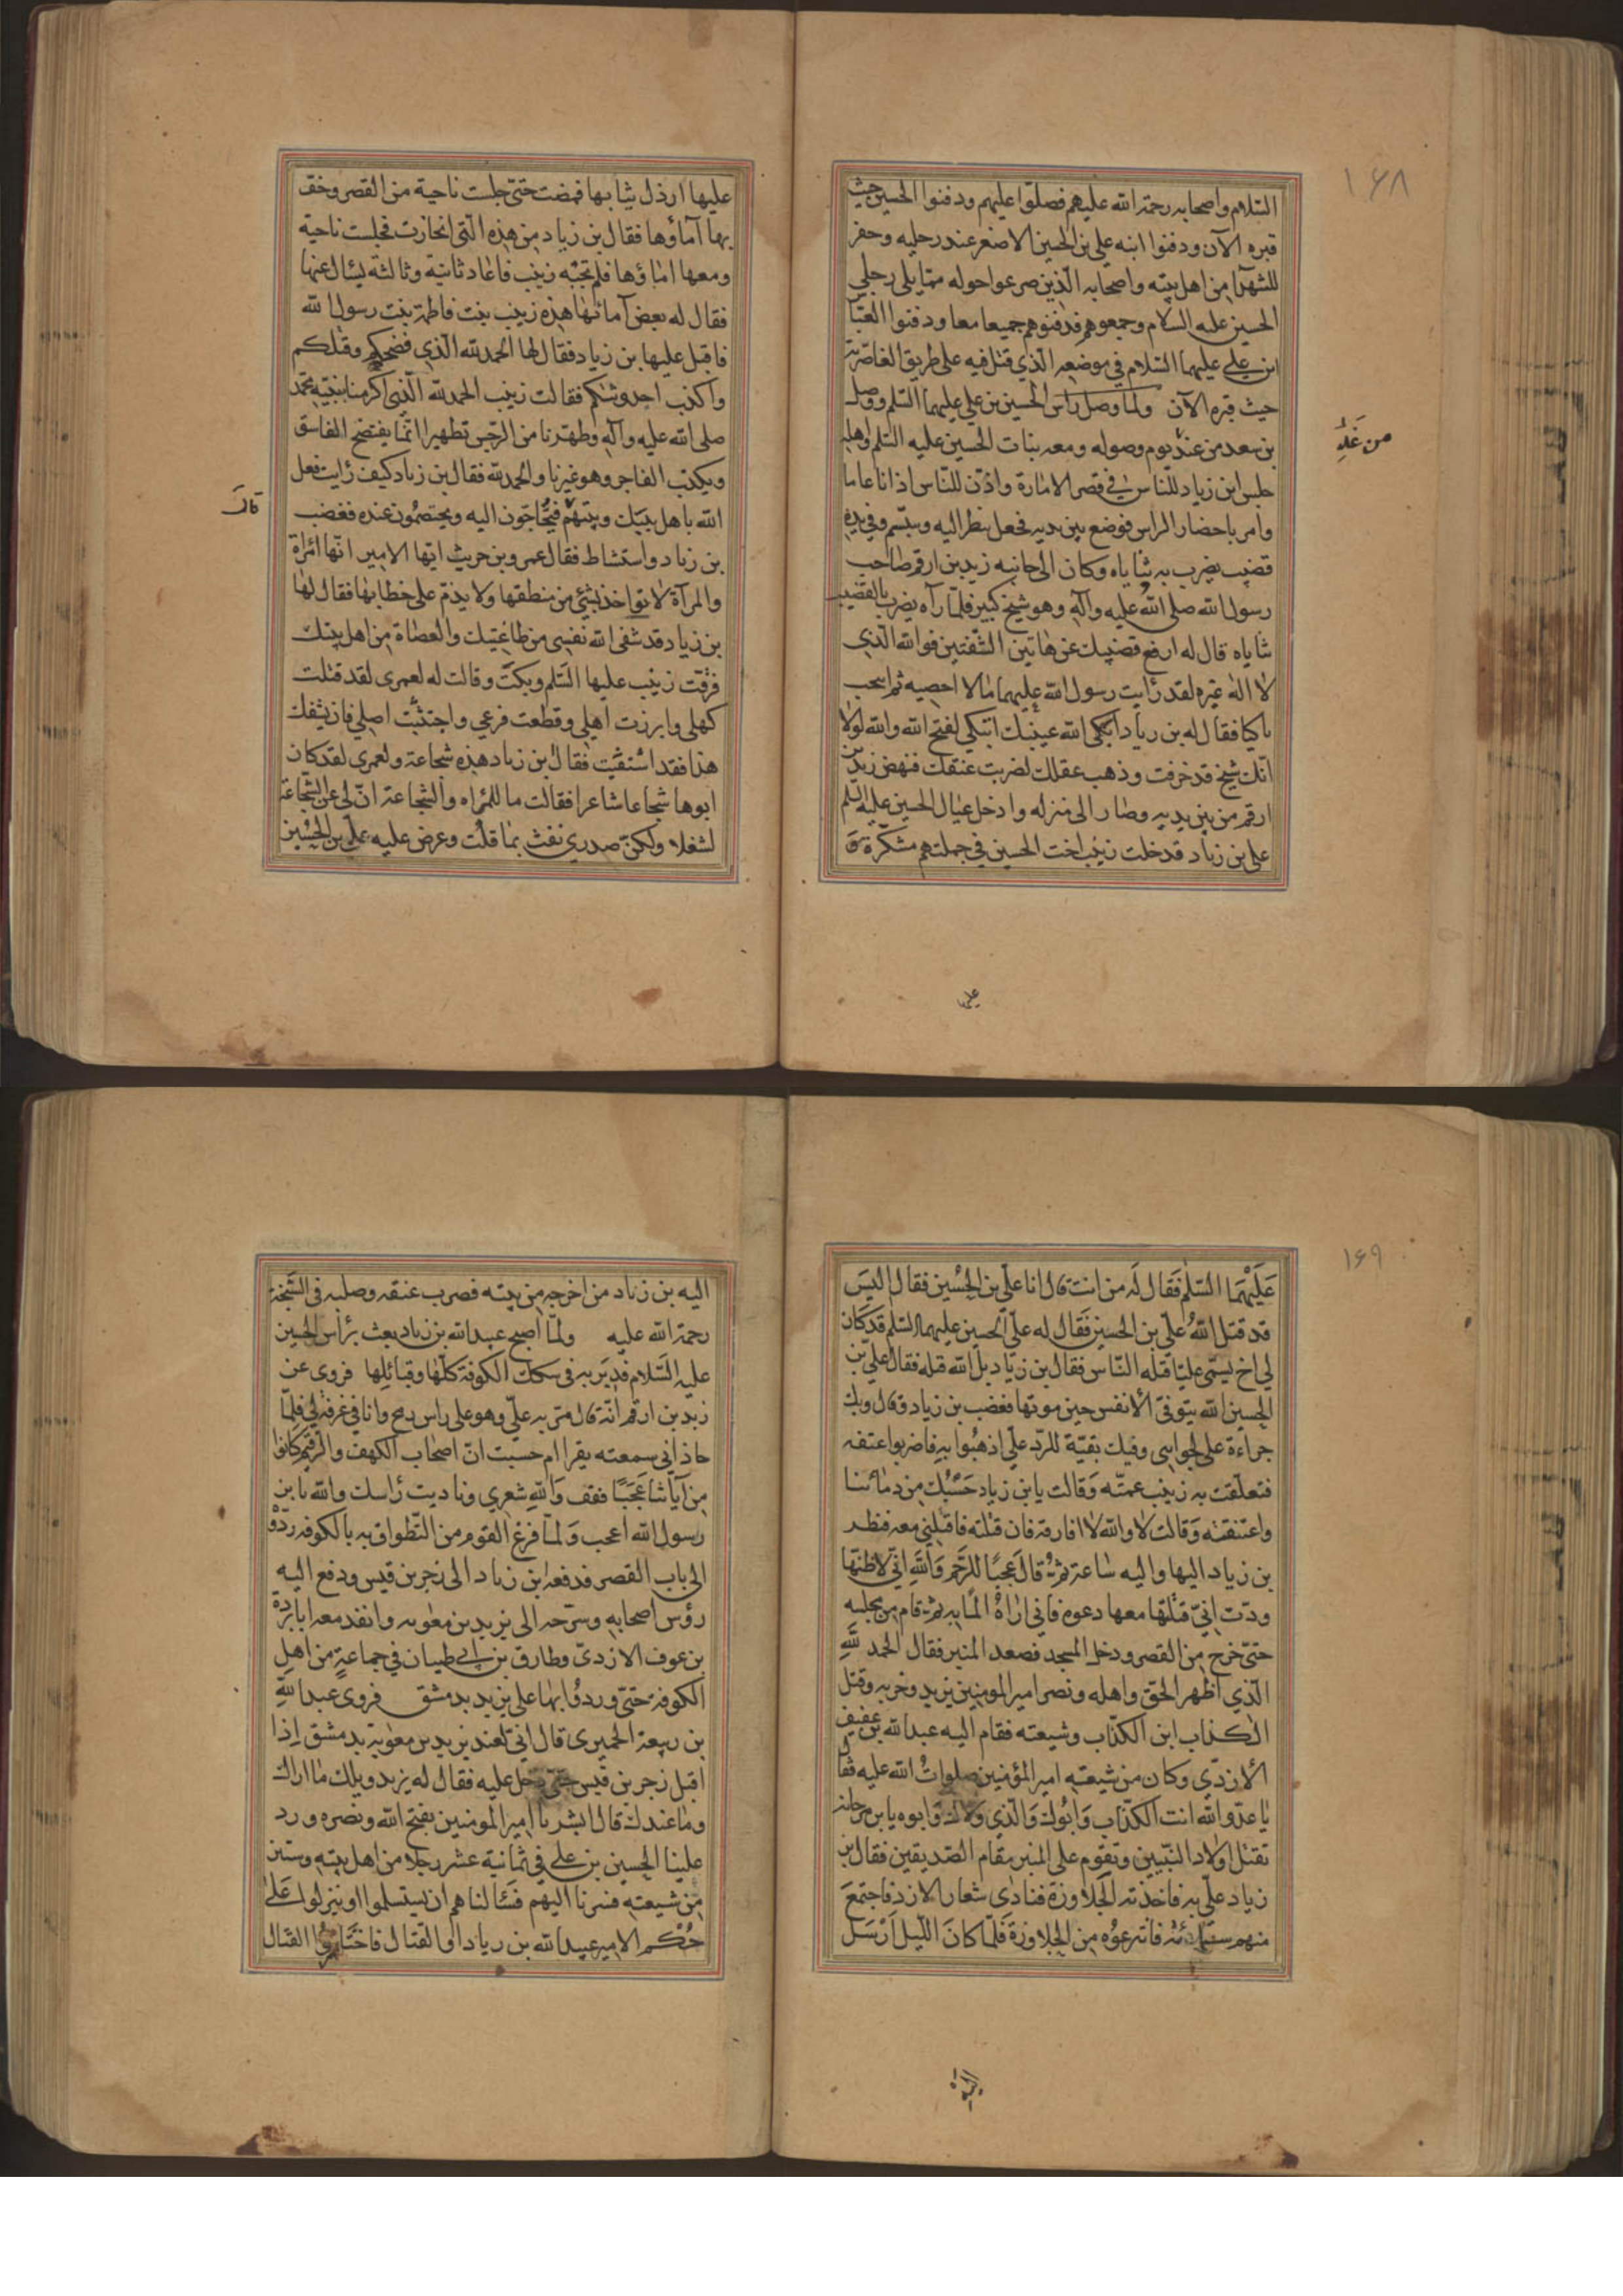 ١٦٨
السلام واصحابه رحمة الله عليهم فصلوا عليهم ودفنوا الحسين حيث
قبره الآن ودفنوا ابنه علي بن الحسين الاصغر عند رجليه وحفر
للشهدآء من اهل بيته واصحابه الذين صرعوا حوله ممّا يلي رجلي
الحسين عليه السلام وجمعوهم فدفنوهم جميعا معا ودفنوا العبّا
ابن علي عليهما السلام في موضعه الّذي قتل فيه على طريق الغاضرية
حيث قبره الآن ولمّا وصل راس الحسين بن علي عليهما السّلم ووصل
بن سعد من عند يوم وصوله ومعه بنات الحسين عليه السّلم واهله
من غَدِ
جلس ابن زياد للناس في قصر الامارة واذّن للنّاس اذانا عاما
وامر باحضار الراس فوضع بين يديه فجعل ينظر اليه ويبتسّم وفي يده
قضيب يضرب به ثناياه وكان الى جانبه زيد بن ارقم صاحب
رسول الله صلى الله عليه وآله وهو شيخ كبير فلمّا رآه يضرب بالقضيب
ثناياه قال له ارفع قضيبك عن هاتين الشّفتين فوالله الّذي
لا اله غيره لقد رأيت رسول الله عليهما مالا احصيه ثم انتحب
باكيا فقال له بن زياد ابكى الله عينيك اتبكي لفتح الله والله لولا
انّك شيخ قد خرفت وذهب عقلك لضربت عنقك فنهض زيد بن
ارقم من بين يديه وصار الى منزله وادخل عيال الحسين عليه السّلم
على بن زياد فدخلت زينب اخت الحسين في جملتهم متنكّرة وَ
على
عليها ارذل ثيابها فمضت حتّى جلست ناحية من القصر وحف
بها آماؤها فقال بن زياد من هذه الّتي انحازت فجلست ناحية
ومعها اماؤها فلم تجبه زينب فاعاد ثانية وثالثة يسأل عنها
فقال له بعض آمائها هذه زينب بنت فاطمة بنت رسول الله
فاقبل عليها بن زياد فقال لها الحمد لله الّذي فضحكم وقتلكم
واكذب احدوثتكم فقالت زينب الحمد لله الّذى اكرمنا بنبيّه محمّد
صلى الله عليه وآله وطهّرنا من الرّجس تطهيرا انّما يفتضح الفاسق
ويكذب الفاجر وهو غيرنا والحمد لله فقال بن زياد كيف رأيت فعل
الله باهل بيتك وبينهم فيحّاجّون اليه ويختصمون عنده فغضب
قالت
بن زياد واستشاط فقال عمرو بن حريث ايّها الامير انّها امرأة
والمرآة لا تؤاخذ بشئ من منطقها ولا يذمّ على خطابها فقال لها
بن زياد قد شفى الله نفسي من طاغيتك والعصاة من اهل بيتك
فرقّت زينب عليها السّلم وبكت وقالت له لعمرى لقد قتلت
كهلي وابرزت اهلي وقطعت فرعي واجتثثت اصلي فان يشفك
هذا فقد اشتفيت فقال بن زياد هذه شجاعة ولعمرى لقد كان
ابوها شجاعا شاعرا فقالت ما للمرأه والشجاعة انّ لي عن الشّجاعة
لشغلا ولكن صدري نفث بما قلت وعرض عليه علي بن الحسين
١٦٩
عَلَيْهِمَا السّلم فَقال لَه من انت قال انا علي بن الحسين فقال اليسَ
قد قتل اللهُ علي بن الحسين فقال له علي الحسين عليهما السلم قد كان
لي اخ يسمّى عليّا قتله النّاس فقال بن زياد بل الله قتله فقال علي بن
الحسين الله يتوفّى الأنفس حين موتها فغضب بن زياد وقال وبك
جراءة على لجوابي وفيك بقيّة للردّ علي اذهبُوا به فاضربوا عنقه
فتعلّقت به زينب عمتّه وَقالت يا بن زياد حَسْبُك من دمائنا
واعتنقته وَقالت لا والله لا افارقه فان قتلته فاقتلني معه فنظر
بن زياد اليها واليه ساعة ثمّ قال عجبًا للرّحم وَاللهِ انّي لاظنّها
ودّت انّي قتلتها معها دعوه فاني اراهُ لما به ثم قام من مجلسه
حتّى خرج من القصر ودخل المسجد فصعد المنبر فقال الحمد للهِ
الّذي اظهر الحقّ واهله ونصر امير المومنين يزيد وحزبه وقتل
الكذاب ابن الكذّاب وشيعته فقام اليه عبد الله بن عفيف
الأزديّ وكان من شيعته امير المؤمنين صلواتُ الله عليه فقا
يا عدّو الله انت الكذّاب وَابُوك وَالّذي ولّاك وَابوه يابن مرجانه
تقتل اولاد النّبيين وتقوم على المنبر مقام الصّديقين فقال بن
زياد عليّ به فاخذته الجَلاوزة فنادى شعار الازد فاجتمعَ
منهم سبعمائة فانتزعوُه من الجلاوزة فَلمّا كانَ اللّيل اَرْسَل
اليه
اليه بن زياد من اخرجه من بيته فضرب عنقه وصلبه في السّبخة
رحمة الله عليه ولمّا اصبح عبيد الله بن زياد بعث برأس الحسين
عليه السّلام فدير به في سكك الكوفة كلّها وقبائلها فروى عن
زيد بن ارقم انّه قال مرّ به عليّ وهو على راس رمح وانا في غرفة لي فلمّا
حاذاني سمعته يقرا ام حسبت انّ اصحاب الكهف والرّقيم كانوا
من آياتنا عَجَبًا فقف وَاللهِ شعري وناديت رأسك والله يا بن
رسول الله اعجب وَلمّا فرغ القوم من التّطواف به بالكوفه ردّوه
الى باب القصر فدفعه ابن زياد الى زجر بن قيس ودفع اليه
رؤس اصحابه وسرّحه الى يزيد بن معوية وانفد معه ابا بردة
بن عوف الازديّ وطارق بن ابي ظبيان في جماعةٍ من اهلِ
الكوفة حتّى وردوُا بها على يزيد بدمشق فروى عبد اللهِ
بن ربيعة الحميرى قال انّي لعند يزيد بن معوية بدمشق اِذا
اقبل زجر بن قيس حتّى دخل عليه فقال له يزيد ويلك ما اراك
وما عندك قال ابشر يا امير المومنين بفتح الله ونصره ورد
علينا الحسين بن علي في ثمانية عشر رجلا من اهل بيته وستين
من شيعته فسرنا اليهم فسئالناهم ان يستسلموا او ينزلوا عَلَىٰ
حُكْم الامير عبيد الله بن زياد او القتال فاختاروُا القتال